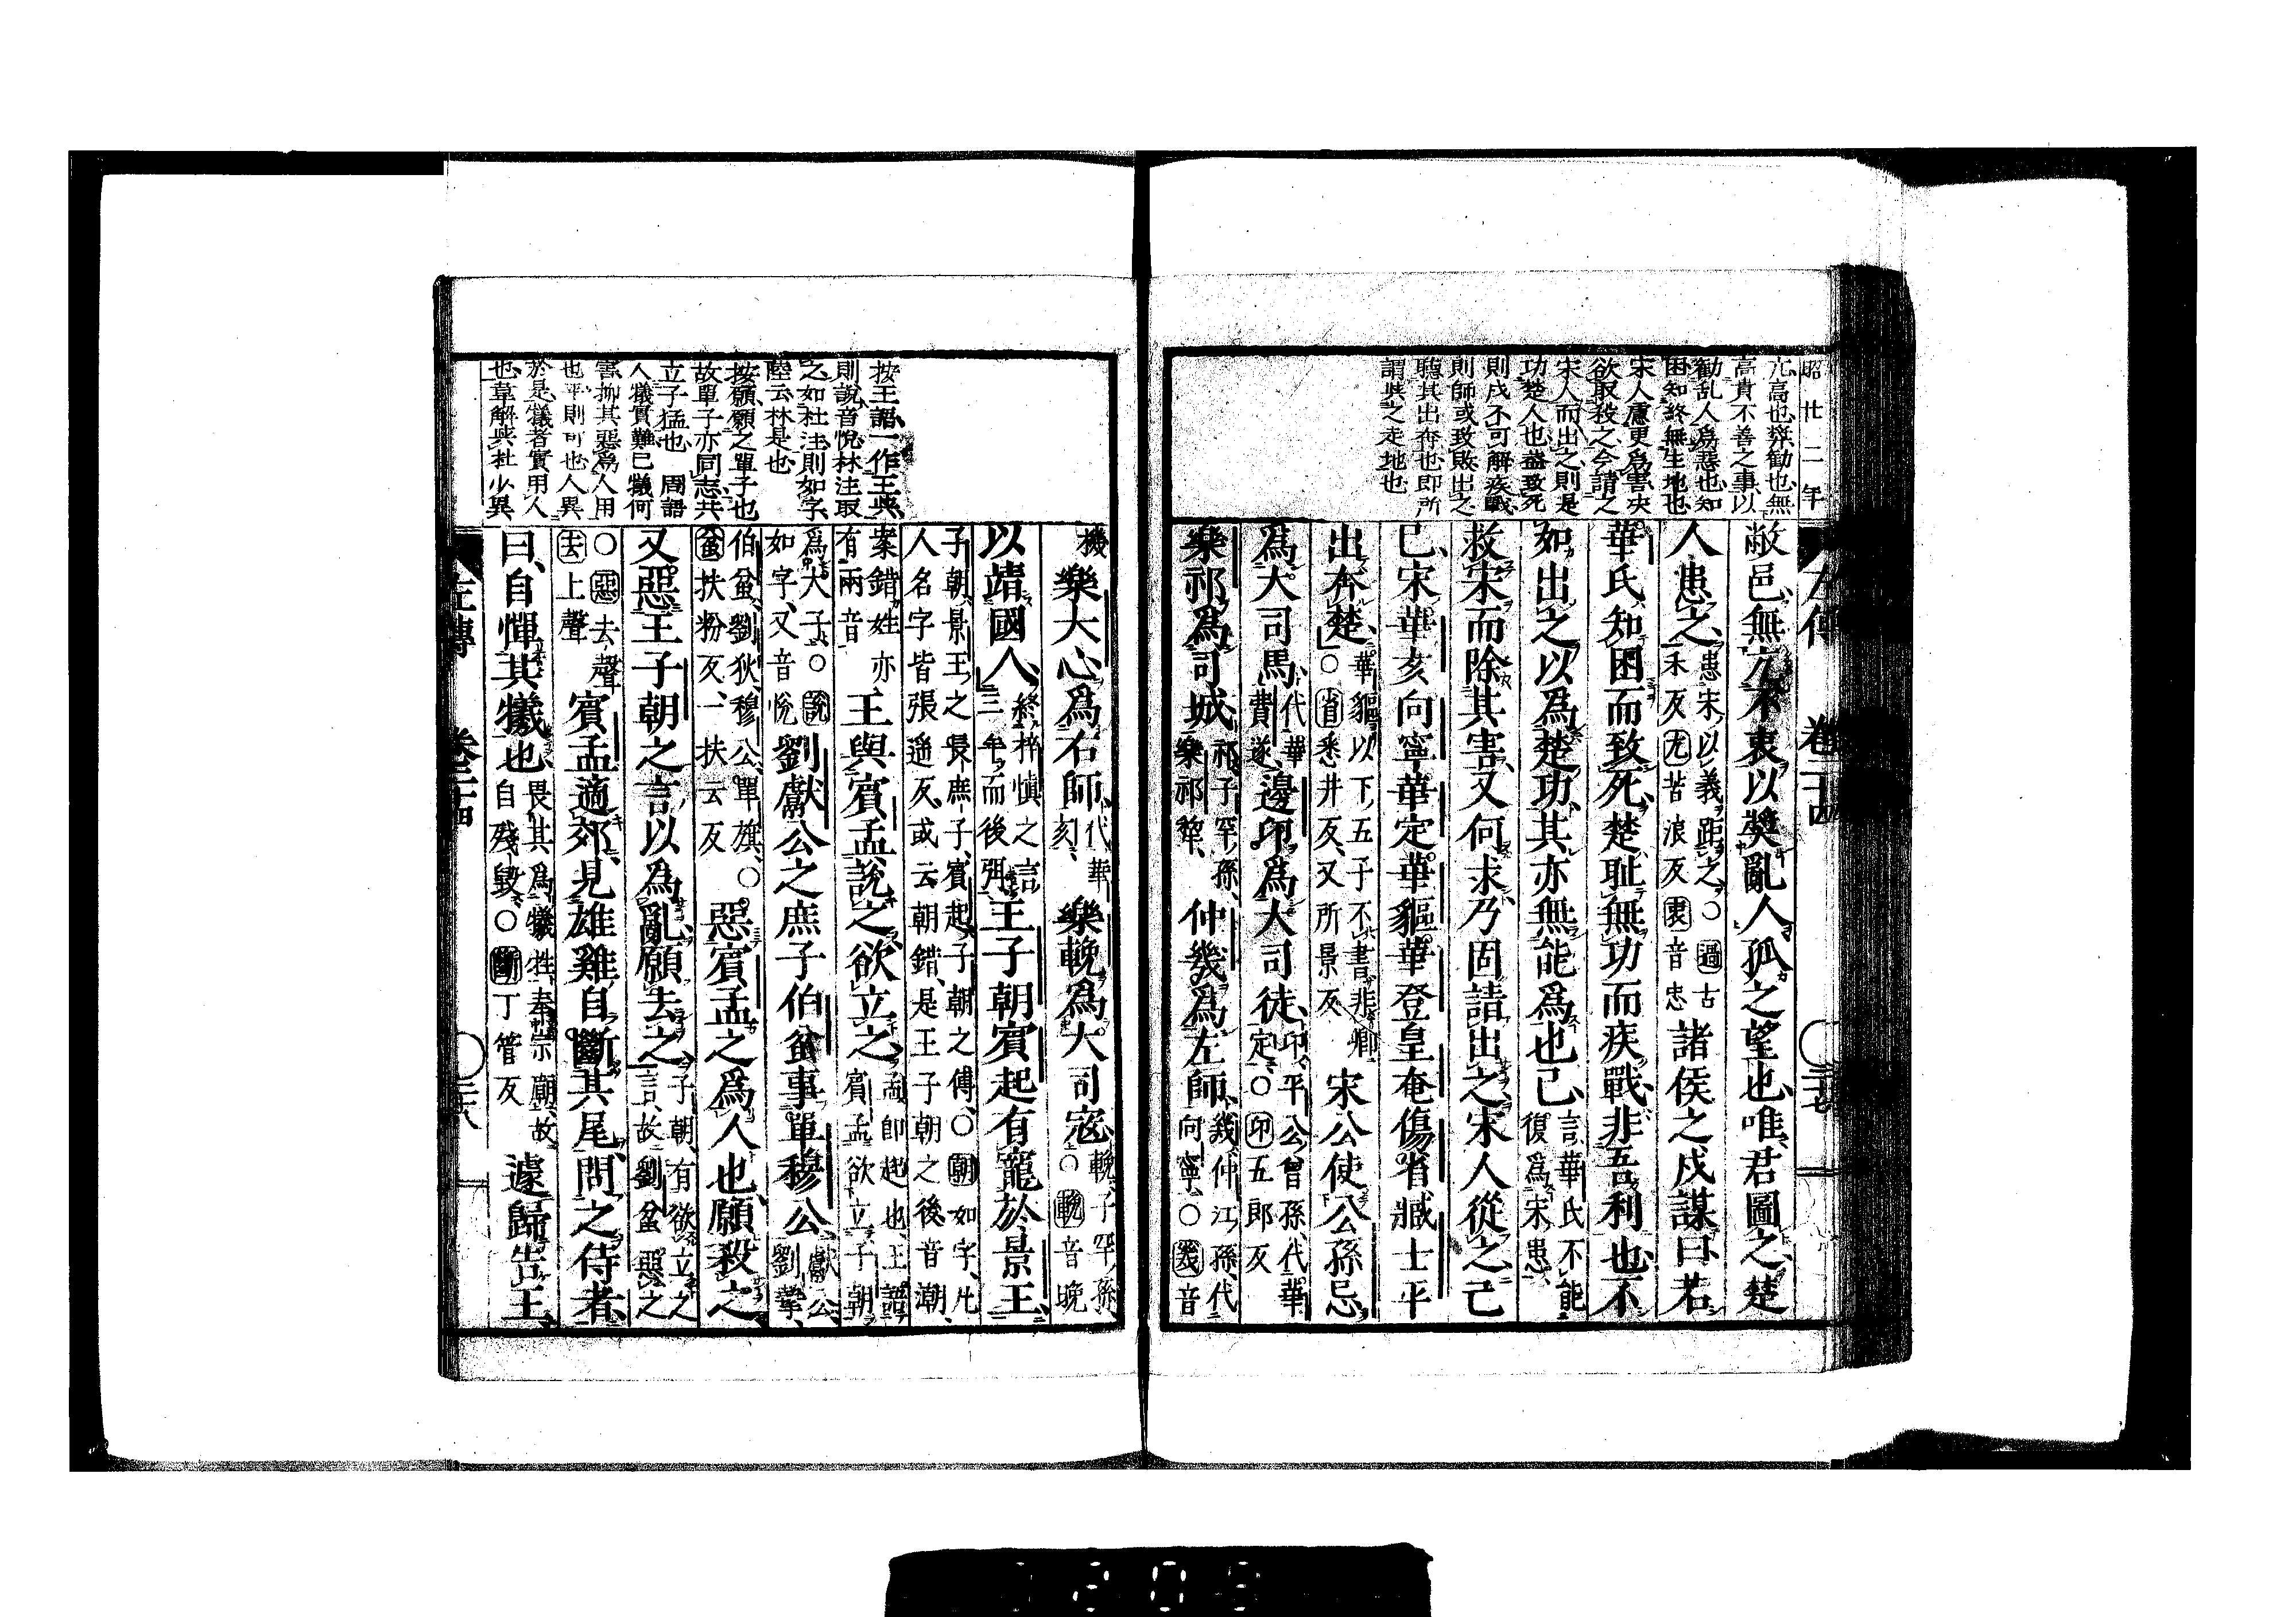 昭廿二年
亢高也奬勸也無
高貴不善之事以
勸乱人爲惡也知
困知終無生地也
宋人慮更爲害央
欲取殺之今請之
宋人而出之則是
功楚人也盡致死
則戍不可解疾戰
則師或致敗出之
聽其出奔也即所
謂與之走地也
左傳 卷二十四 〇二十七
敝邑無亢不衷以奬亂人孤之望也唯君圖之楚
人患之患宋以義距之〇過古
禾反亢苦浪反衷音忠諸侯之戍謀曰若
華氏知困而致死楚耻無功而疾戰非吾利也不
如出之以爲楚功其亦無能爲也已言華氏不能
復爲宋患
救宋而除其害又何求乃固請出之宋人從之己
巳宋華亥向寧華定華貙華登皇奄傷省臧士平
出奔楚華貙以下五子不書非卿
〇省悉井反又所景反宋公使公孫忌
爲大司馬代華
費遂邊卬爲大司徒卬平公曾孫代華
定〇卬五郎反
樂祁爲司城祁子罕孫
樂祁犂仲幾爲左師幾仲江孫代
向寧〇幾音
機樂大心爲右師代華
亥樂輓爲大司寇輓子罕孫
〇輓音晚
以靖國人終梓愼之言
三年而後弭王子朝賓起有寵於景王
子朝景王之長庶子賓起子朝之傅〇朝如字凡
人名字皆張遥反或云朝錯是王子朝之後音潮
案錯姓亦
有兩音王與賓孟說之欲立之孟即起也王語
賓孟欲立子朝
爲大子〇說
如字又音悅劉獻公之庶子伯蚠事單穆公獻公
劉摯
伯蚠劉狄穆公單旗〇
蚠扶粉反一扶云反惡賓孟之爲人也願殺之
又惡王子朝之言以爲亂願去之子朝有欲立之
言故劉蚠惡之
〇惡去聲
去上聲賓孟適郊見雄雞自斷其尾問之侍者
曰自憚其犧也畏其爲犧牲奉宗廟故
自殘毀〇斷丁管反遽歸告王
左傳 卷二十四 〇二十八
按王語一作王與
則說音悅林注取
之如杜注則如字
陸云林是也
按願願之單子也
故單子亦同志共
立子猛也 周語
人犧實難已犧何
害抑其惡爲人用
也乎則可也人異
於是犧者實用人
也韋解與杜少異